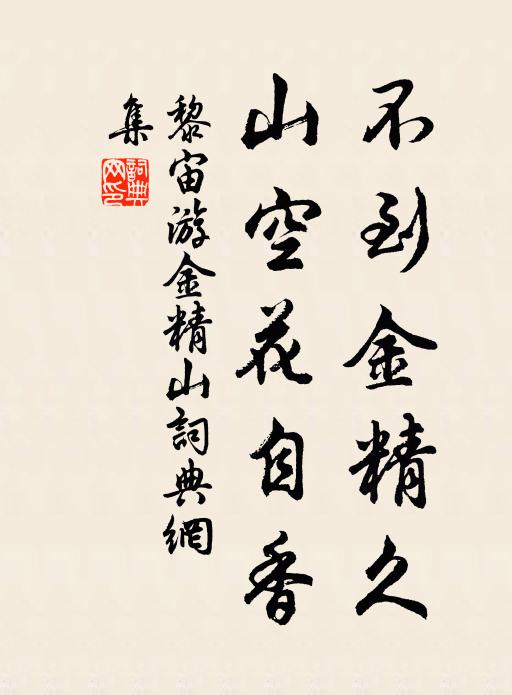 不到金精久
山空花自香
黎宙游金精山詞典網
集
詞典
网印